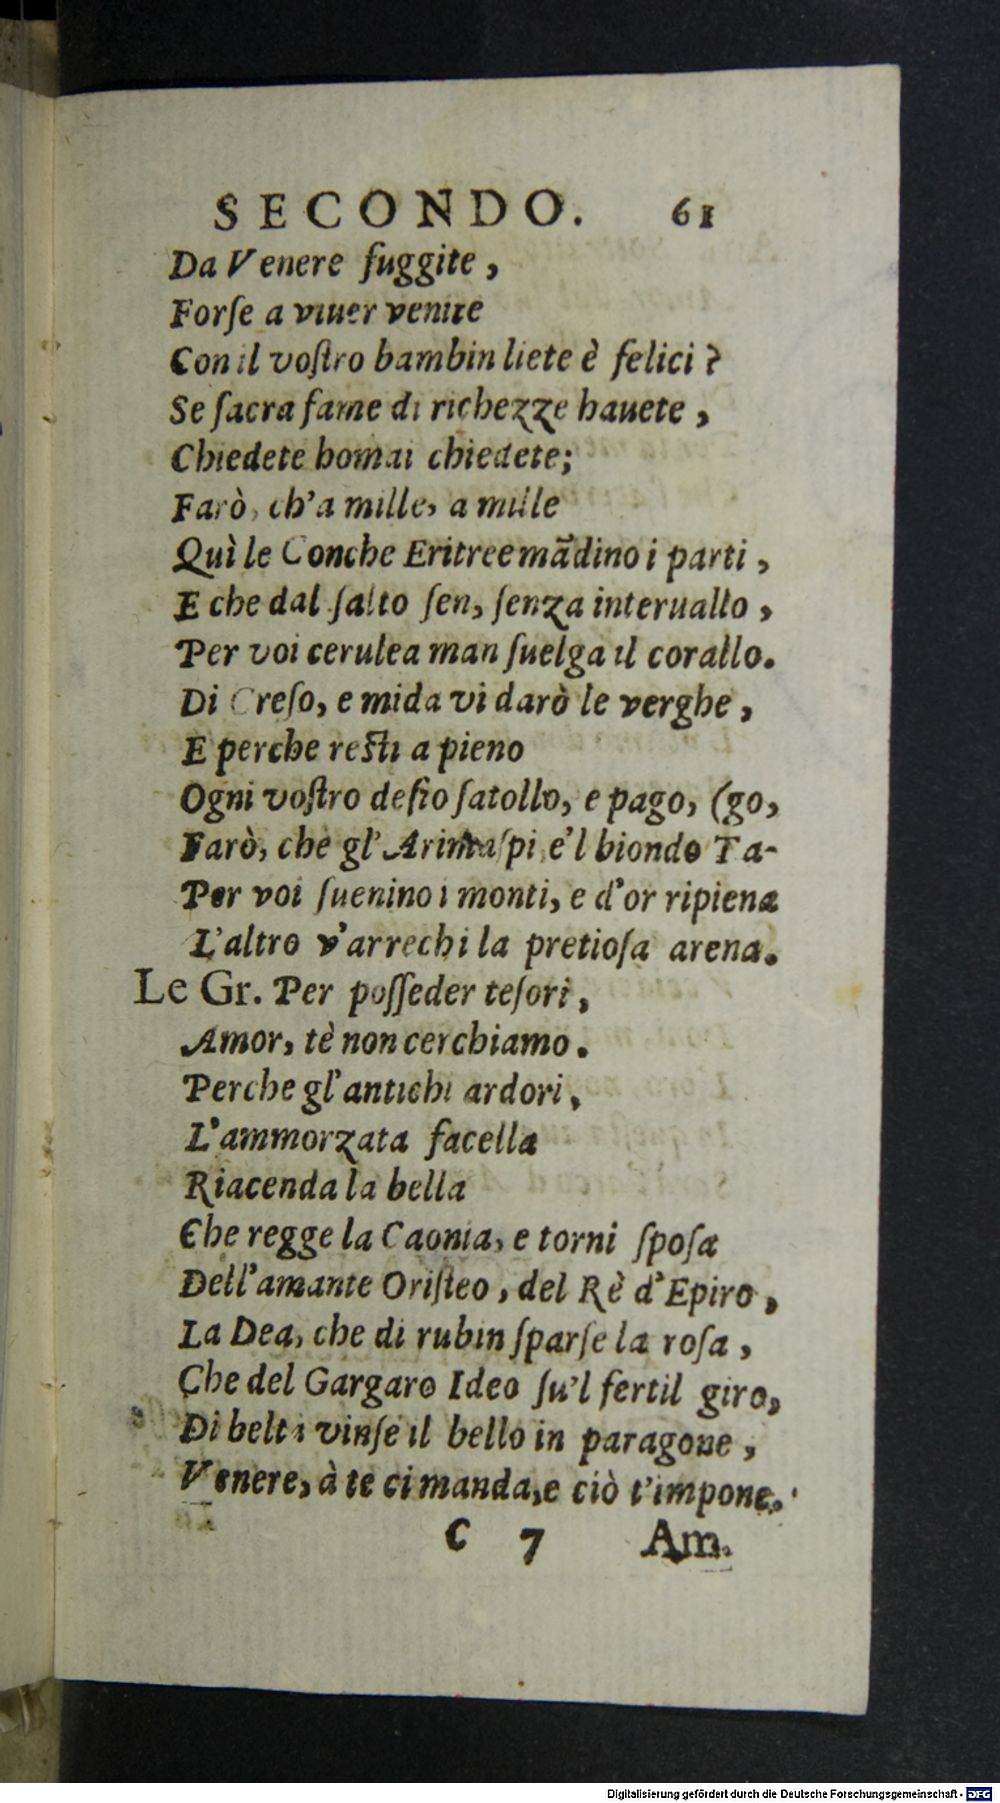 SECONDO. 61
Da Venere fuggite,
Forſe a viuer venite
Con il voſtro bambin liete è felici?
Se ſacra fame di richezze hauete,
Chiedete homai chiedete;
Farò, ch'a mille, a mille
Quì le Conche Eritree mādino i parti,
E che dal ſalto ſen, ſenza interuallo,
Per voi cerulea man ſuelga il corallo.
Di Creſo, e mida vi darò le verghe,
E perche reſti a pieno
Ogni voſtro deſio ſatollo, e pago, (go,
Farò, che gl'Arimaſpi e'l biondo Ta-
Per voi ſuenino i monti, e d'or ripiena
L'altro v'arrechi la pretioſa arena.
Le Gr. Per poſſeder teſori,
Amor, tè non cerchiamo.
Perche gl'antichi ardori,
L'ammorzata facella
Riacenda la bella
Che regge la Caonia, e torni ſpoſa
Dell'amante Oriſteo, del Rè d'Epiro,
La Dea, che di rubin ſparſe la roſa,
Che del Gargaro Ideo ſu'l fertil giro,
Di belta vinſe il bello in paragone,
Venere, à te ci manda, e ciò t'impone.
C 7 Am.
Digitalisierung gefördert durch die Deutsche Forschungsgemeinschaft - DFG